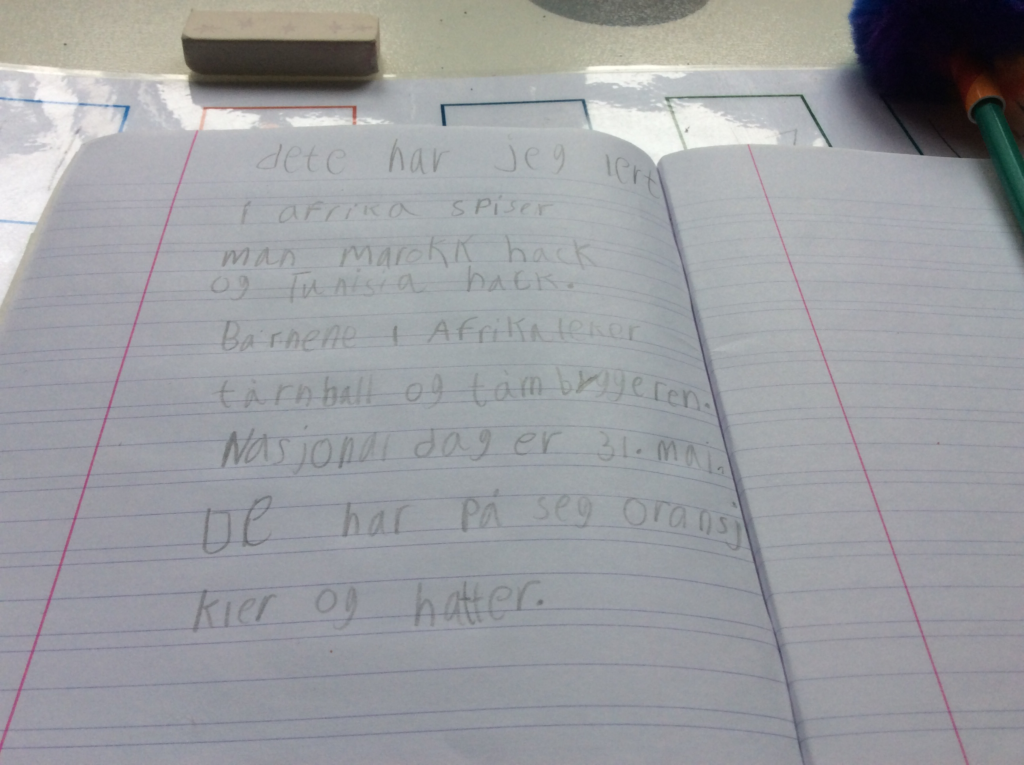 dete har jeg lert
i afrika spiser
man marokk hack
og Tunisia hack.
Barnene i Afrika leker
tårnball og tårnbyggeren.
Nasjonal dag er 31. mai.
De har på seg oransj
kler og hatter.